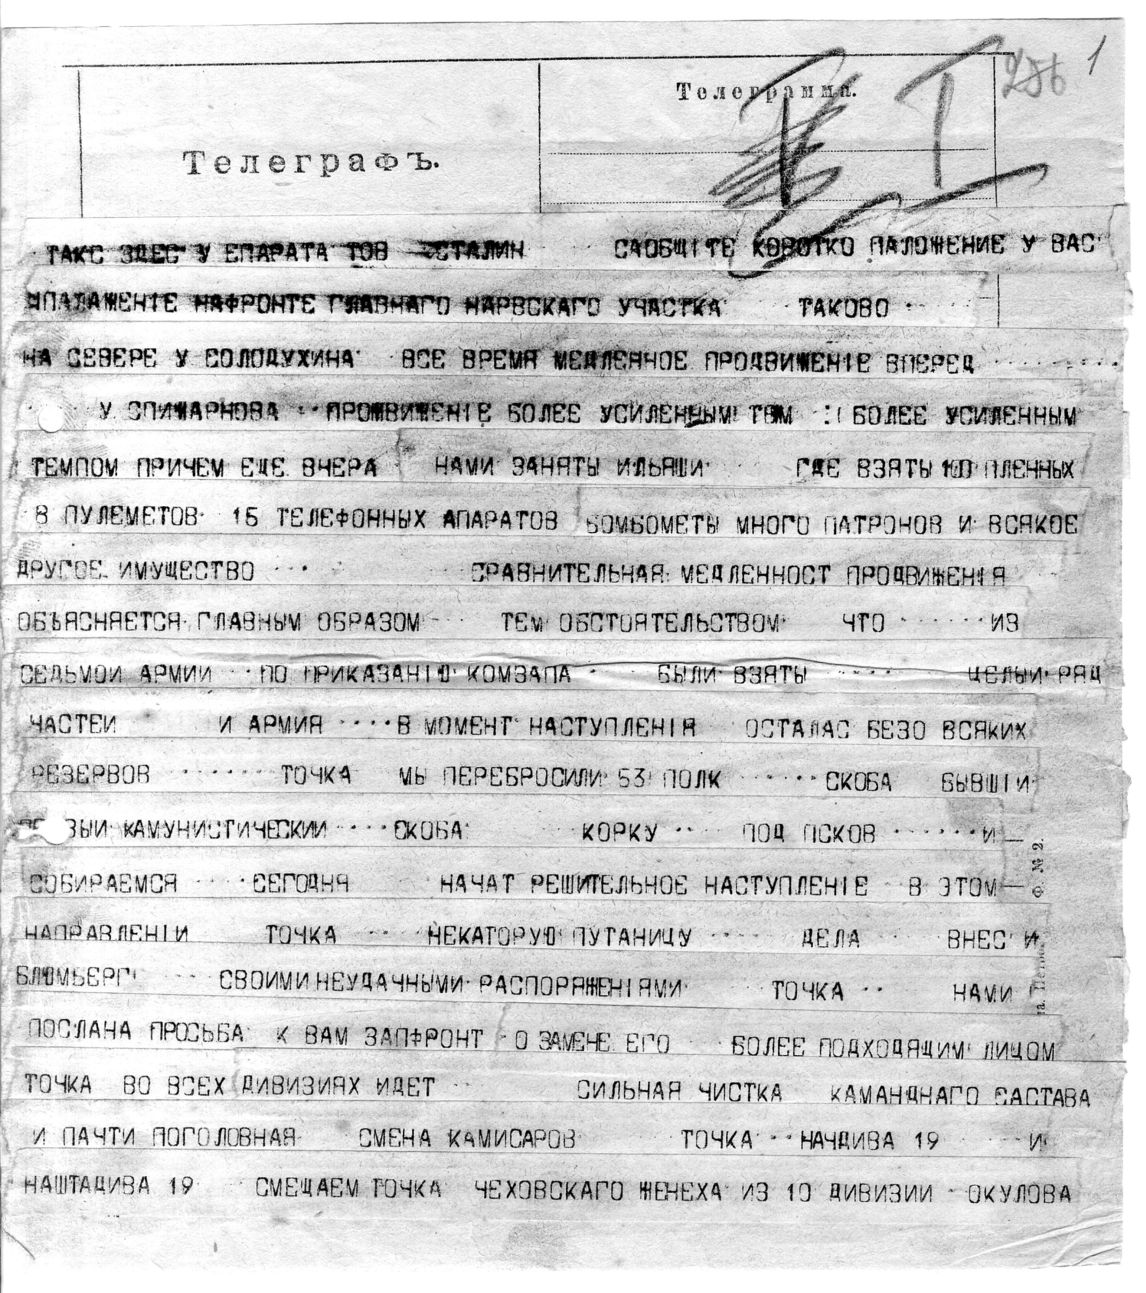 286 1
Телеграмма.
Телеграфъ.
ТАКС ЗДЕС У ЕПАРАТА ТОВ СТАЛИН САОБЩIТЕ КОРОТКО ПАЛОЖЕНИЕ У ВАС
НАФРОНТЕ ГЛАВНАГО НАРВСКАГО УЧАСТКА ТАКОВО
НА СЕВЕРЕ У СОЛОДУХИНА ВСЕ ВРЕМЯ МЕДЛЕННОЕ ПРОДВИЖЕНIЕ ВПЕРЕД
У ПРОЖВИЖЕНIЕ БОЛЕЕ УСИЛЕННЫМ ТЕМ БОЛЕЕ УСИЛЕННЫМ
ТЕМПОМ ПРИЧЕМ ЕЩЕ ВЧЕРА НАМИ ЗАНЯТЫ ИЛЬЯШИ ГДЕ ВЗЯТЫ ПЛЕННЫХ
8 ПУЛЕМЕТОВ 15 ТЕЛЕФОННЫХ АПАРАТОВ БОМБОМЕТЫ МНОГО ПАТРОНОВ И ВСЯКОЕ
ДРУГОЕ ИМУЩЕСТВО СРАВНИТЕЛЬНАЯ МЕДЛЕННОСТ ПРОДВИЖЕНIЯ
ОБЪЯСНЯЕТСЯ ГЛАВНЫМ ОБРАЗОМ ТЕМ ОБСТОЯТЕЛЬСТВОМ ЧТО ИЗ
СЕДЬМОИ АРМИИ ПО ПРИКАЗАНIЮ КОМЗАПА БЫЛИ ВЗЯТЫ ЦЕЛЫИ РЯД
ЧАСТЕИ И АРМИЯ В МОМЕНТ НАСТУПЛЕНIЯ ОСТАЛАС БЕЗО ВСЯКИХ
РЕЗЕРВОВ ТОЧКА МЫ ПЕРЕБРОСИЛИ 53 ПОЛК СКОБА БЫВШIИ
КАМУНИСТИЧЕСКИИ СКОБА КОРКУ ПОД ПСКОВ И
СОБИРАЕМСЯ СЕГОДНЯ НАЧАТ РЕШИТЕЛЬНОЕ НАСТУПЛЕНIЕ В ЭТОМ
Ф. № 2.
НАПРАВЛЕНIИ ТОЧКА НЕКАТОРУЮ ПУТАНИЦУ ДЕЛА ВНЕС И
БЛЮМБЕРГ СВОИМИ НЕУДАЧНЫМИ РАСПОРЯЖЕНIЯМИ ТОЧКА НАМИ
ПОСЛАНА ПРОСЬБА К ВАМ ЗАПФРОНТ О ЗАМЕНЕ ЕГО БОЛЕЕ ПОДХОДЯЩИМ ЛИЦОМ
ТОЧКА ВО ВСЕХ ДИВИЗИЯХ ИДЕТ СИЛЬНАЯ ЧИСТКА КАМАНДНАГО САСТАВА
И ПАЧТИ ПОГОЛОВНАЯ СМЕНА КАМИСАРОВ ТОЧКА НАЧДИВА 19 И
НАШТАДИВА 19 СМЕЩАЕМ ТОЧКА ЧЕХОВСКАГО ЖЕНЕХА ИЗ 10 ДИВИЗИИ ОКУЛОВА